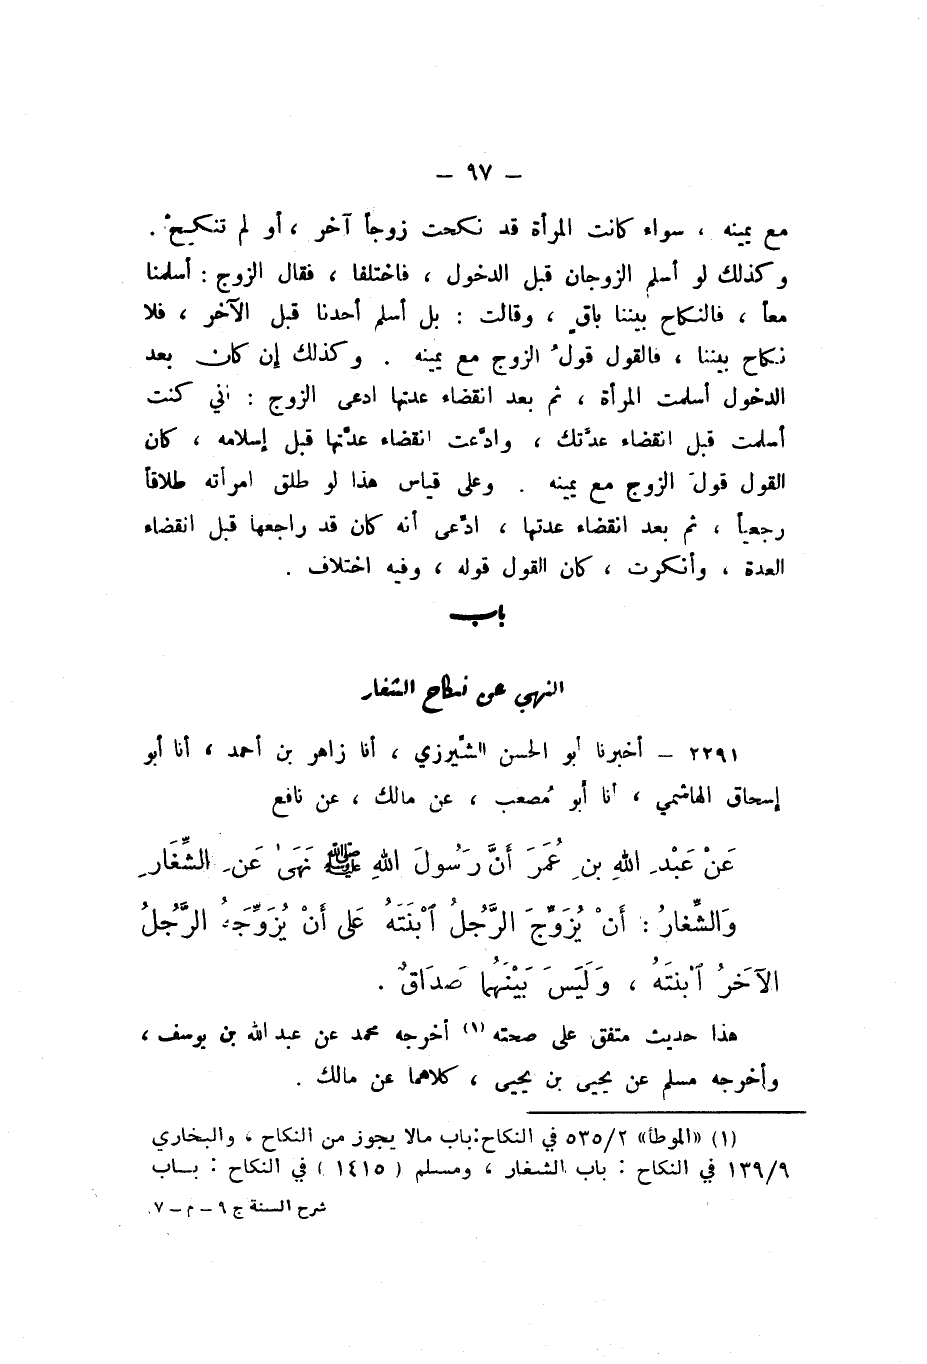 – ٩٧ –
مع يمينه ، سواء كانت المرأة قد نكحت زوجاً آخر ، أو لم تنكحْ .
وكذلك لو أسلم الزوجان قبل الدخول ، فاختلفا ، فقال الزوج : أسلمنا
معاً ، فالنكاح بيننا باقٍ ، وقالت : بل أسلم أحدنا قبل الآخر ، فلا
نكاح بيننا ، فالقول قولُ الزوج مع يمينه . وكذلك إن كان بعد
الدخول أسلمت المرأة ، ثم بعد انقضاء عدتها ادعى الزوج : اني كنت
أسلمت قبل انقضاء عدَّتك ، وادَّعت انقضاء عدَّتها قبل إسلامه ، كان
القول قولَ الزوج مع يمينه . وعلى قياس هذا لو طلق امرأته طلاقاً
رجعياً ، ثم بعد انقضاء عدتها ، ادَّعى أنه كان قد راجعها قبل انقضاء
العدة ، وأنكرت ، كان القول قوله ، وفيه اختلاف .
باب
النهي عن نكاح الشغار
٢٢٩١ – أخبرنا أبو الحسن الشِّيرزي ، أنا زاهر بن أحمد ، أنا أبو
إسحاق الهاشمي ، أنا أبو مُصعب ، عن مالك ، عن نافع
عَنْ عَبْدِ اللهِ بنِ عُمَرَ أَنَّ رَسُولَ اللهِ ﷺ نَهَى عَنِ الشِّغَارِ
وَالشِّغارُ : أَنْ يُزَوِّجَ الرَّجُلُ ٱبْنَتَهُ عَلى أَنْ يُزَوِّجَهُ الرَّجُلُ
الآخَرُ ٱبْنتَهُ ، وَلَيسَ بَيْنَهُما صَدَاقٌ .
هذا حديث متفق على صحته (١) أخرجه محمد عن عبد الله بن يوسف ،
وأخرجه مسلم عن يحيى بن يحيى ، كلاهما عن مالك .
(١) «الموطأ» ٥٣٥/٢ في النكاح:باب مالا يجوز من النكاح ، والبخاري
١٣٩/٩ في النكاح : باب الشغار ، ومسلم ( ١٤١٥ ) في النكاح : بـاب
شرح السنة ج ٩ – م – ٧.